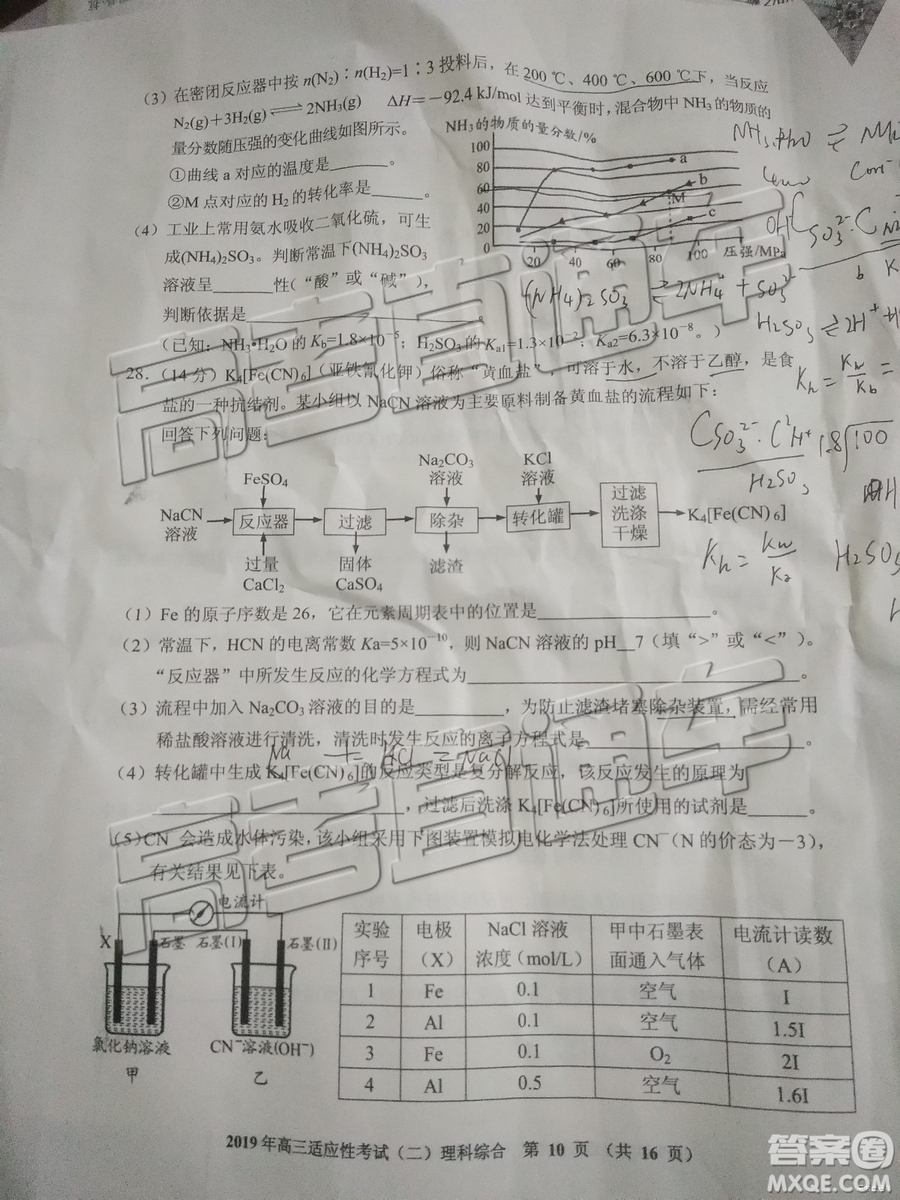 （3）在密闭反应器中按 n(N₂)∶n(H₂)=1∶3 投料后，在 200 ℃、400 ℃、600 ℃下，当反应
N₂(g)+3H₂(g)⇌2NH₃(g)　ΔH=－92.4 kJ/mol 达到平衡时，混合物中 NH₃ 的物质的
量分数随压强的变化曲线如图所示。
①曲线 a 对应的温度是______。
②M 点对应的 H₂ 的转化率是______。
NH₃的物质的量分数/%
100
80
60
40
20
0
20 40 60 80 100 压强/MPa
a
b
M
c
（4）工业上常用氨水吸收二氧化硫，可生
成(NH₄)₂SO₃。判断常温下(NH₄)₂SO₃
溶液呈______性(“酸”或“碱”)，
判断依据是______。
（已知：NH₃•H₂O 的 Kb=1.8×10⁻⁵；H₂SO₃的 Ka1=1.3×10⁻²；Ka2=6.3×10⁻⁸。）
(NH4)2SO3 ⇌ 2NH4+ + SO3²⁻
Kh = Kw/Kb =
Kh = Kw/Ka
28．（14 分）K₄[Fe(CN)₆]（亚铁氰化钾）俗称“黄血盐”，可溶于水，不溶于乙醇，是食
盐的一种抗结剂。某小组以 NaCN 溶液为主要原料制备黄血盐的流程如下：
回答下列问题：
FeSO₄
Na₂CO₃溶液
KCl溶液
NaCN溶液
反应器
过滤
除杂
转化罐
过滤 洗涤 干燥
K₄[Fe(CN)₆]
过量CaCl₂
固体CaSO₄
滤渣
（1）Fe 的原子序数是 26，它在元素周期表中的位置是______。
（2）常温下，HCN 的电离常数 Ka=5×10⁻¹⁰，则 NaCN 溶液的 pH__7（填“>”或“<”）。
“反应器”中所发生反应的化学方程式为______。
（3）流程中加入 Na₂CO₃ 溶液的目的是______，为防止滤渣堵塞除杂装置，需经常用
稀盐酸溶液进行清洗，清洗时发生反应的离子方程式是______。
（4）转化罐中生成 K₄[Fe(CN)₆]的反应类型是复分解反应，该反应发生的原理为
______，过滤后洗涤 K₄[Fe(CN)₆]所使用的试剂是______。
（5）CN⁻会造成水体污染，该小组采用下图装置模拟电化学法处理 CN⁻（N 的价态为－3），
有关结果见下表。
电流计
X
石墨 石墨(I)
石墨(II)
氯化钠溶液
CN⁻溶液(OH⁻)
甲
乙
实验序号 电极（X） NaCl 溶液浓度（mol/L） 甲中石墨表面通入气体 电流计读数（A）
1 Fe 0.1 空气 I
2 Al 0.1 空气 1.5I
3 Fe 0.1 O₂ 2I
4 Al 0.5 空气 1.6I
2019 年高三适应性考试（二）理科综合 第 10 页 （共 16 页）
高考直通车
高考直通车
高考直通车
答案圈
MXQE.COM